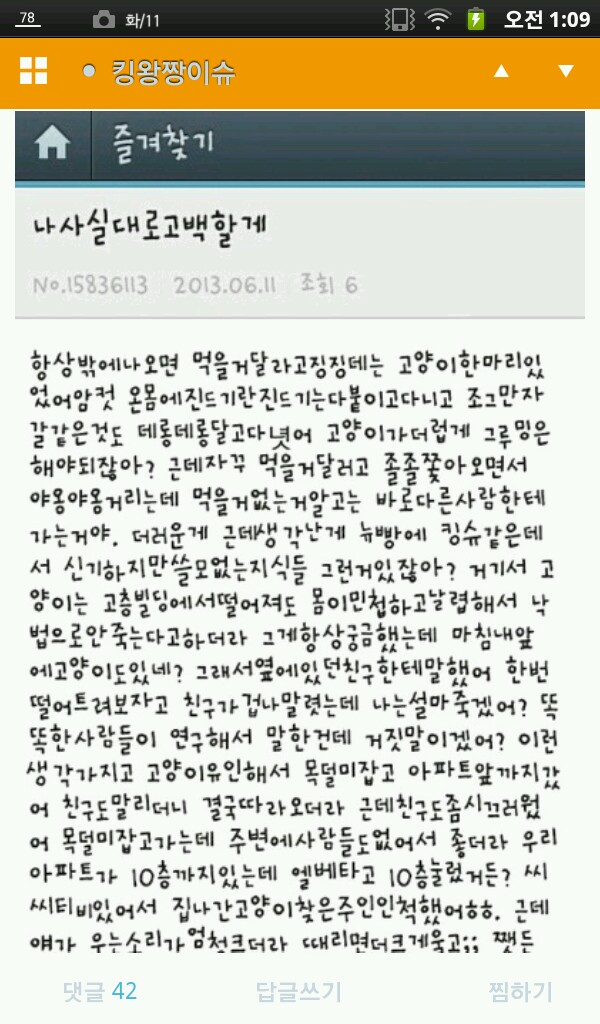 78 화/11 오전 1:09
킹왕짱이슈
즐겨찾기
나사실대로고백할게
No.15836113 2013.06.11 조회 6
항상밖에나오면 먹을거달라고징징데는 고양이한마리있
었어암컷 온몸에진드기란진드기는다붙이고다니고 조그만자
갈같은것도 데롱데롱달고다녓어 고양이가더럽게 그루밍은
해야되잖아? 근데자꾸 먹을거달러고 졸졸쫓아오면서
야옹야옹거리는데 먹을거없는거알고는 바로다른사람한테
가는거야. 더러운게 근데생각난게 뉴빵에 킹슈같은데
서 신기하지만쓸모없는지식들 그런거있잖아? 거기서 고
양이는 고층빌딩에서떨어져도 몸이민첩하고날렵해서 낙
법으로안죽는다고하더라 그게항상궁금했는데 마침내앞
에고양이도있네? 그래서옆에있던친구한테말했어 한번
떨어트려보자고 친구가겁나말렷는데 나는설마죽겠어? 똑
똑한사람들이 연구해서 말한건데 거짓말이겠어? 이런
생각가지고 고양이유인해서 목덜미잡고 아파트앞까지갔
어 친구도말리더니 결국따라오더라 근데친구도좀시끄러웠
어 목덜미잡고가는데 주변에사람들도없어서 좋더라 우리
아파트가 10층까지있는데 엘베타고 10층눌렀거든? 씨
씨티비있어서 집나간고양이찾은주인인척했어ㅎㅎ. 근데
얘가 우는소리가엄청크더라 때리면더크게울고;; 쨋든
댓글 42 답글쓰기 찜하기